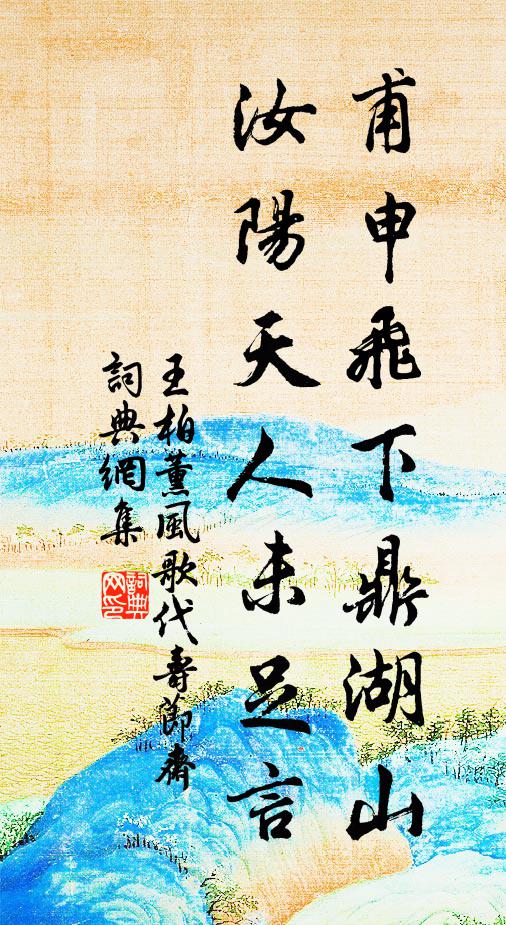 甫申飛下鼎湖山
汝陽天人未足言
王柏薰風歌代壽節齋
詞典網集
詞典網印